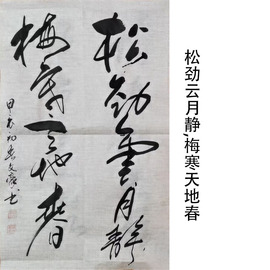 松勁雲月靜
梅寒天地春
松劲云月静,梅寒天地春